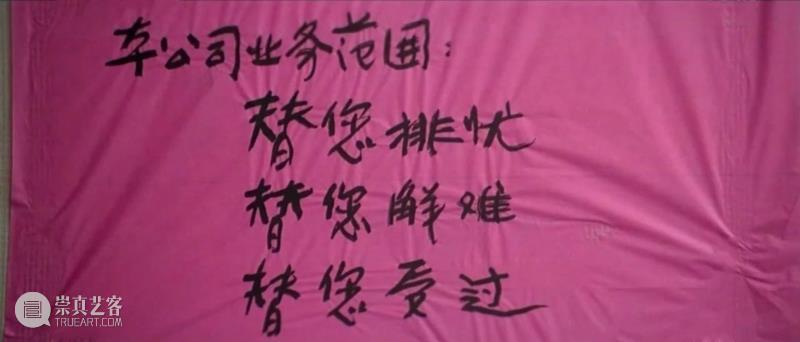 本公司业务范围：
替您排忧
替您解难
替您受过
崇真艺客
TRUEART.COM